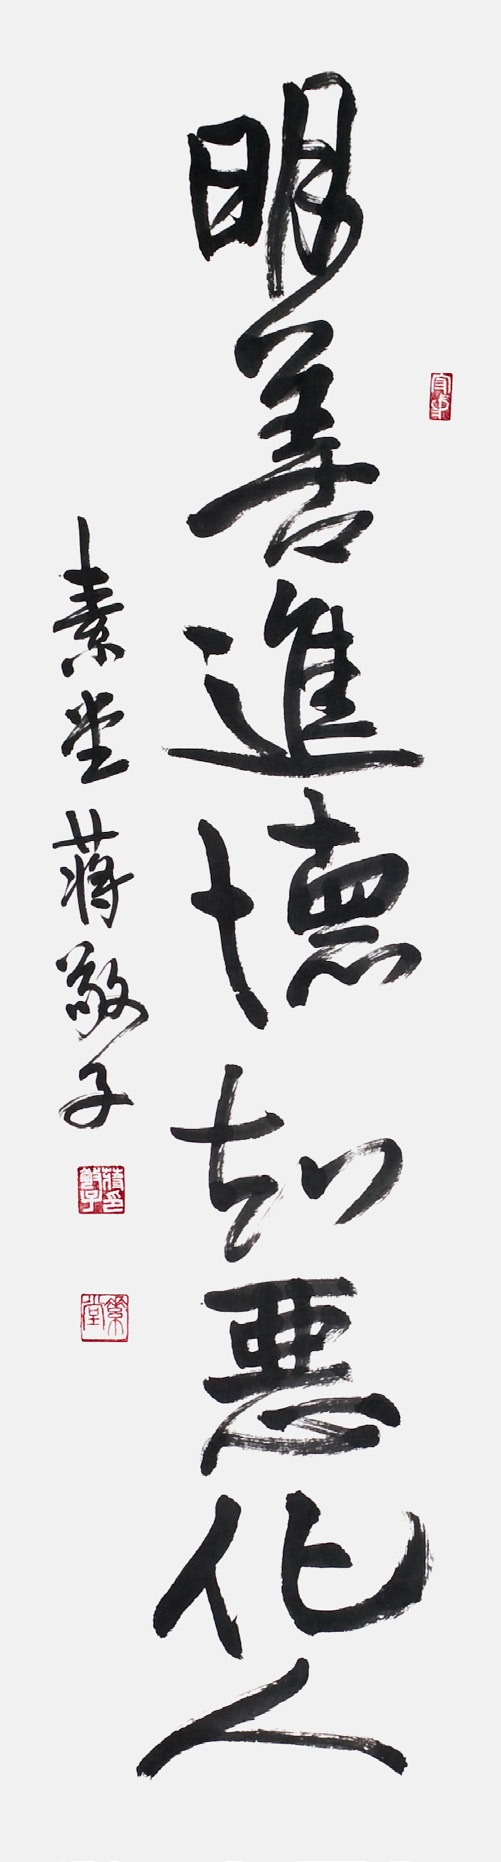 明善進德知惡化人
素堂蔣敬子